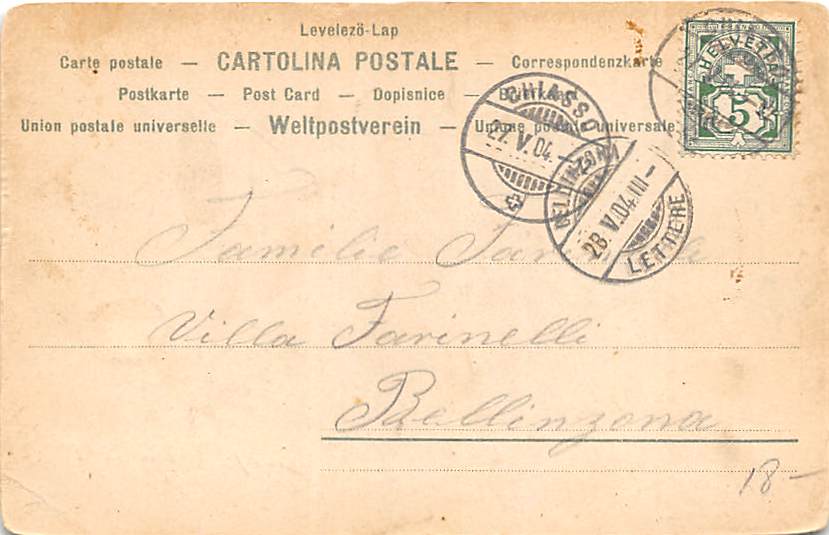 Levelezö-Lap
Carte postale — CARTOLINA POSTALE — Correspondenzkarte
Postkarte — Post Card — Dopisnice —
Union postale universelle — Weltpostverein — Unione postale universale
HELVETIA
5
CHIASSO
27.V.04.
BELLINZONA
28.V.04.III—
LETTERE
Familie
Villa Farinelli
Bellinzona
18-